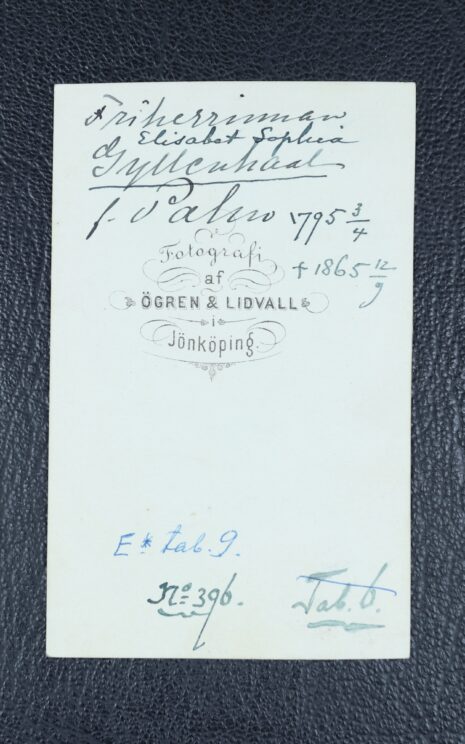 Friherrinnan
Elisabet Sophia
Gyllenhaal
f. Palm 1795 3/4
+ 1865 12/9
Fotografi
af
ÖGREN & LIDVALL
i
Jönköping.
E* tab. 9.
No 396.
Tab. 6.